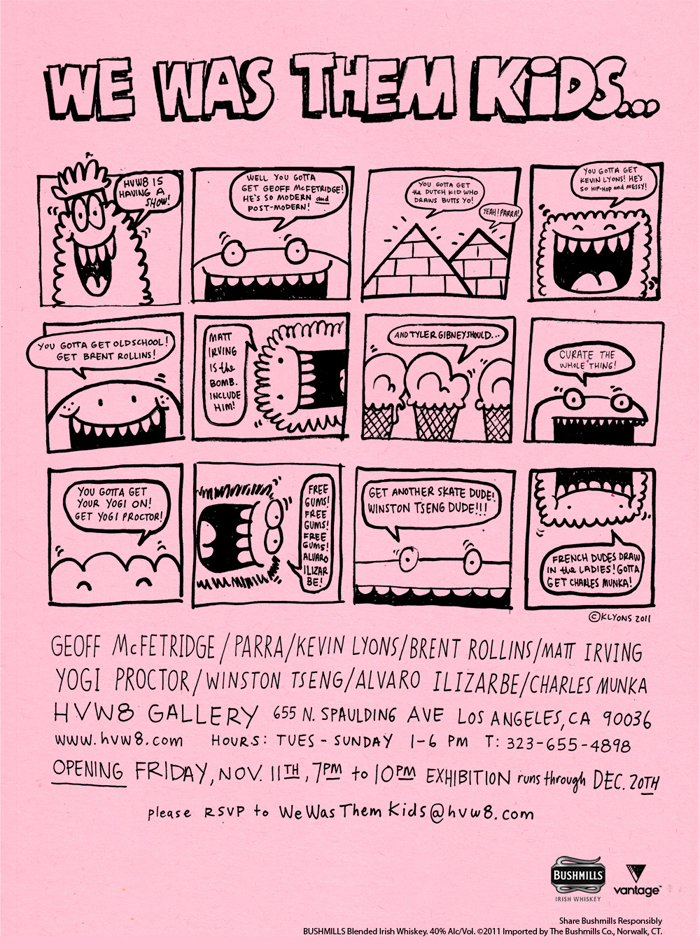 WE WAS THEM KiDS...
HVW8 IS
HAVING A
SHOW!
WELL YOU GOTTA
GET GEOFF McFETRIDGE!
HE'S SO MODERN and
POST-MODERN!
YOU GOTTA GET
the DUTCH KID WHO
DRAWS BUTTS YO!
YEAH! PARRA!
YOU GOTTA GET
KEVIN LYONS! HE'S
SO HIP-HOP and MESSY!
YOU GOTTA GET OLDSCHOOL!
GET BRENT ROLLINS!
MATT
IRVING
IS the
BOMB.
INCLUDE
HIM!
AND TYLER GIBNEY SHOULD...
CURATE THE
WHOLE THING!
YOU GOTTA GET
YOUR YOGI ON!
GET YOGI PROCTOR!
FREE
GUMS!
FREE
GUMS!
FREE
GUMS!
ALVARO
ILIZAR
BE!
GET ANOTHER SKATE DUDE!
WINSTON TSENG DUDE!!!
FRENCH DUDES DRAW
IN the LADIES! GOTTA
GET CHARLES MUNKA!
©KLYONS 2011
GEOFF McFETRIDGE/PARRA/KEVIN LYONS/BRENT ROLLINS/MATT IRVING
YOGI PROCTOR/WINSTON TSENG/ALVARO ILIZARBE/CHARLES MUNKA
HVW8 GALLERY 655 N. SPAULDING AVE LOS ANGELES, CA 90036
www.hvw8.com HOURS: TUES - SUNDAY 1-6 PM T: 323-655-4898
OPENING FRIDAY, NOV. 11TH, 7PM to 10PM EXHIBITION runs through DEC. 20TH
please RSVP to WeWasThemKids@hvw8.com
BUSHMILLS
IRISH WHISKEY
vantage™
Share Bushmills Responsibly
BUSHMILLS Blended Irish Whiskey. 40% Alc/Vol. ©2011 Imported by The Bushmills Co., Norwalk, CT.